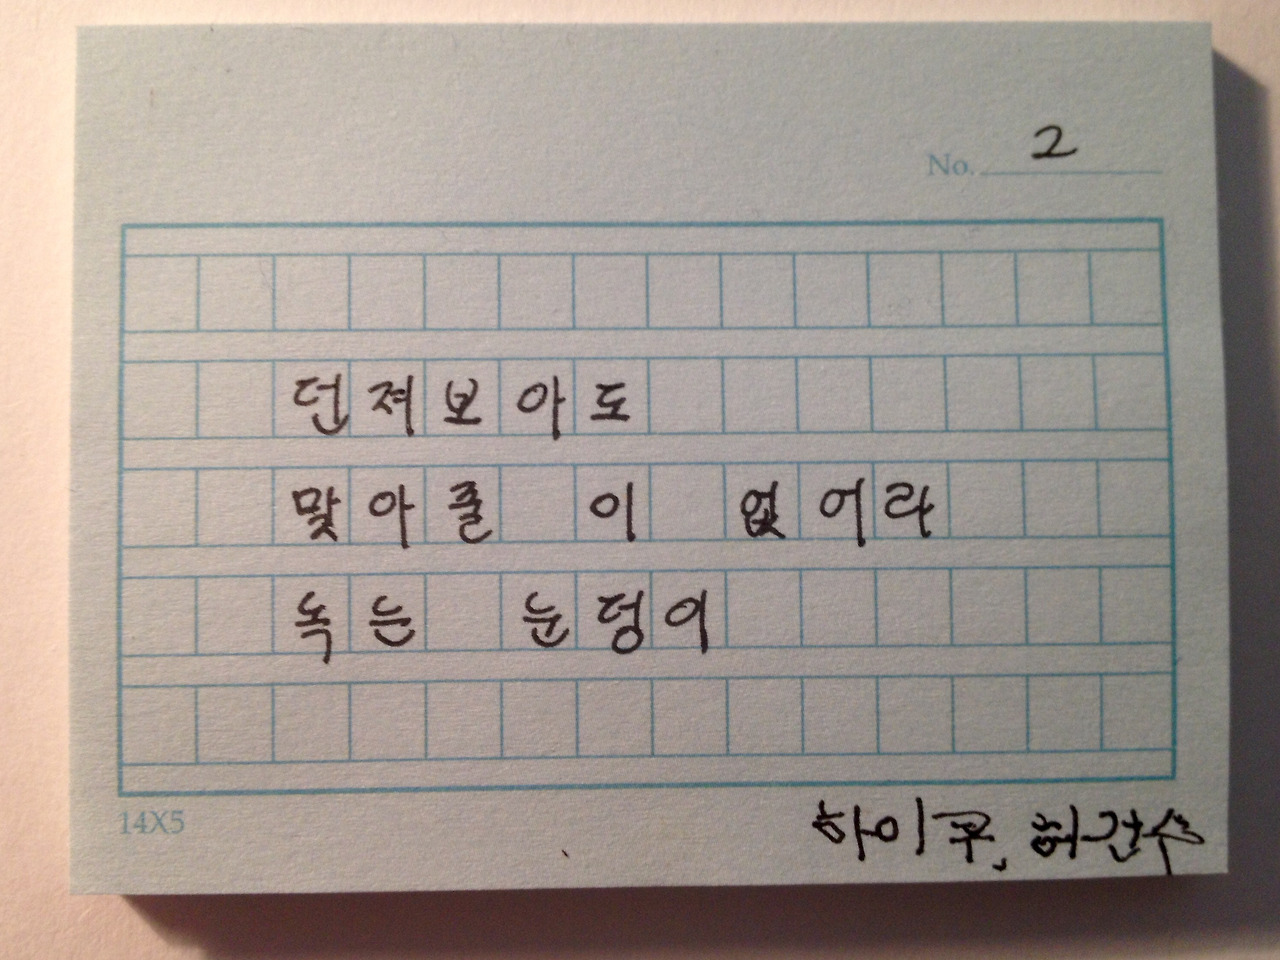 No. 2
던져보아도
맞아줄 이 없어라
녹는 눈덩이
14X5
하이쿠, 허건수